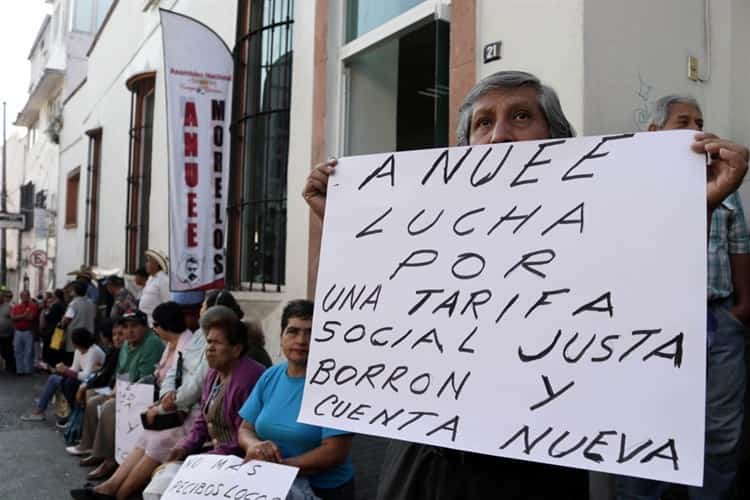 21
Asamblea Nacional
ANUEE
MORELOS
ANUEE
LUCHA
POR
UNA TARIFA
SOCIAL JUSTA
BORRON Y
CUENTA NUEVA
NO MAS
RECIBOS LOCOS